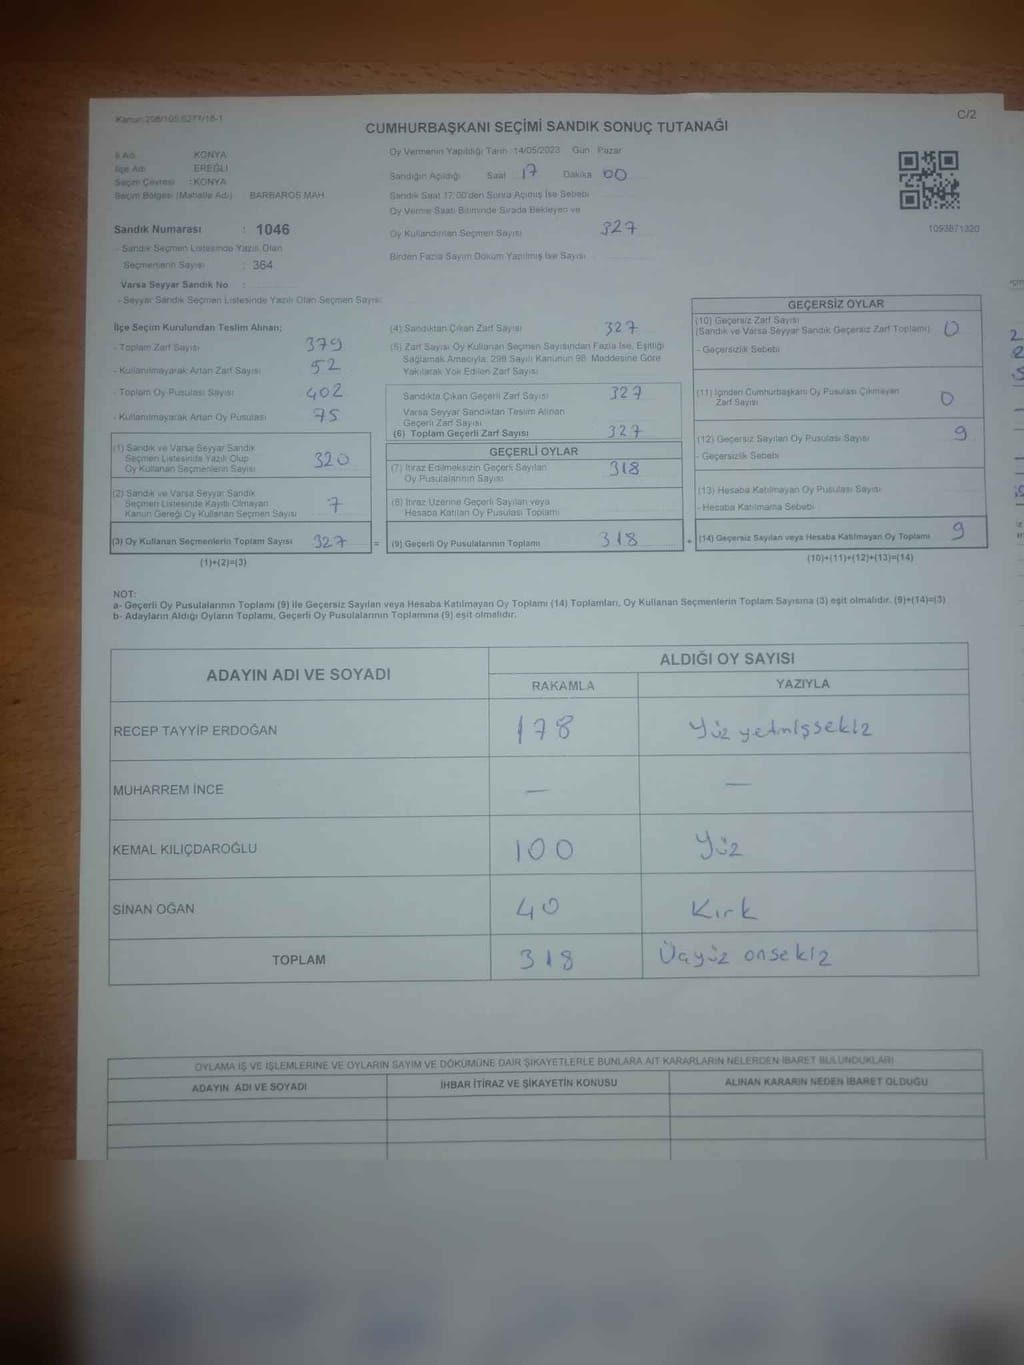 Kanun:298/105,6271/18-1
C/2
CUMHURBAŞKANI SEÇİMİ SANDIK SONUÇ TUTANAĞI
İl Adı KONYA
İlçe Adı EREĞLİ
Seçim Çevresi : KONYA
Seçim Bölgesi (Mahalle Adı) BARBAROS MAH.
Sandık Numarası : 1046
- Sandık Seçmen Listesinde Yazılı Olan
Seçmenlerin Sayısı : 364
Varsa Seyyar Sandık No :
- Seyyar Sandık Seçmen Listesinde Yazılı Olan Seçmen Sayısı
Oy Vermenin Yapıldığı Tarih :14/05/2023 Gün Pazar
Sandığın Açıldığı Saat 17 Dakika 00
Sandık Saat 17:00'den Sonra Açılmış İse Sebebi
Oy Verme Saati Bitiminde Sırada Bekleyen ve
Oy Kullandırılan Seçmen Sayısı 327
Birden Fazla Sayım Döküm Yapılmış İse Sayısı
1093871320
İlçe Seçim Kurulundan Teslim Alınan;
- Toplam Zarf Sayısı 379
- Kullanılmayarak Artan Zarf Sayısı 52
- Toplam Oy Pusulası Sayısı 402
- Kullanılmayarak Artan Oy Pusulası 75
(1) Sandık ve Varsa Seyyar Sandık
Seçmen Listesinde Yazılı Olup
Oy Kullanan Seçmenlerin Sayısı 320
(2) Sandık ve Varsa Seyyar Sandık
Seçmen Listesinde Kayıtlı Olmayan
Kanun Gereği Oy Kullanan Seçmen Sayısı 7
(3) Oy Kullanan Seçmenlerin Toplam Sayısı 327 =
(1)+(2)=(3)
(4) Sandıktan Çıkan Zarf Sayısı 327
(5) Zarf Sayısı Oy Kullanan Seçmen Sayısından Fazla İse, Eşitliği
Sağlamak Amacıyla; 298 Sayılı Kanunun 98. Maddesine Göre
Yakılarak Yok Edilen Zarf Sayısı
Sandıkta Çıkan Geçerli Zarf Sayısı 327
Varsa Seyyar Sandıktan Teslim Alınan
Geçerli Zarf Sayısı
(6) Toplam Geçerli Zarf Sayısı 327
GEÇERLİ OYLAR
(7) İtiraz Edilmeksizin Geçerli Sayılan
Oy Pusulalarının Sayısı 318
(8) İtiraz Üzerine Geçerli Sayılan veya
Hesaba Katılan Oy Pusulası Toplamı
(9) Geçerli Oy Pusulalarının Toplamı 318 +
GEÇERSİZ OYLAR
(10) Geçersiz Zarf Sayısı
(Sandık ve Varsa Seyyar Sandık Geçersiz Zarf Toplamı) 0
- Geçersizlik Sebebi
(11) İçinden Cumhurbaşkanı Oy Pusulası Çıkmayan
Zarf Sayısı 0
(12) Geçersiz Sayılan Oy Pusulası Sayısı 9
- Geçersizlik Sebebi
(13) Hesaba Katılmayan Oy Pusulası Sayısı
- Hesaba Katılmama Sebebi
(14) Geçersiz Sayılan veya Hesaba Katılmayan Oy Toplamı 9
(10)+(11)+(12)+(13)=(14)
NOT:
a- Geçerli Oy Pusulalarının Toplamı (9) ile Geçersiz Sayılan veya Hesaba Katılmayan Oy Toplamı (14) Toplamları, Oy Kullanan Seçmenlerin Toplam Sayısına (3) eşit olmalıdır. (9)+(14)=(3)
b- Adayların Aldığı Oyların Toplamı, Geçerli Oy Pusulalarının Toplamına (9) eşit olmalıdır.
ADAYIN ADI VE SOYADI ALDIĞI OY SAYISI
RAKAMLA YAZIYLA
RECEP TAYYİP ERDOĞAN 178 Yüz yetmişsekiz
MUHARREM İNCE — —
KEMAL KILIÇDAROĞLU 100 Yüz
SİNAN OĞAN 40 Kırk
TOPLAM 318 Üçyüz onsekiz
OYLAMA İŞ VE İŞLEMLERİNE VE OYLARIN SAYIM VE DÖKÜMÜNE DAİR ŞİKAYETLERLE BUNLARA AİT KARARLARIN NELERDEN İBARET BULUNDUKLARI
ADAYIN ADI VE SOYADI İHBAR İTİRAZ VE ŞİKAYETİN KONUSU ALINAN KARARIN NEDEN İBARET OLDUĞU